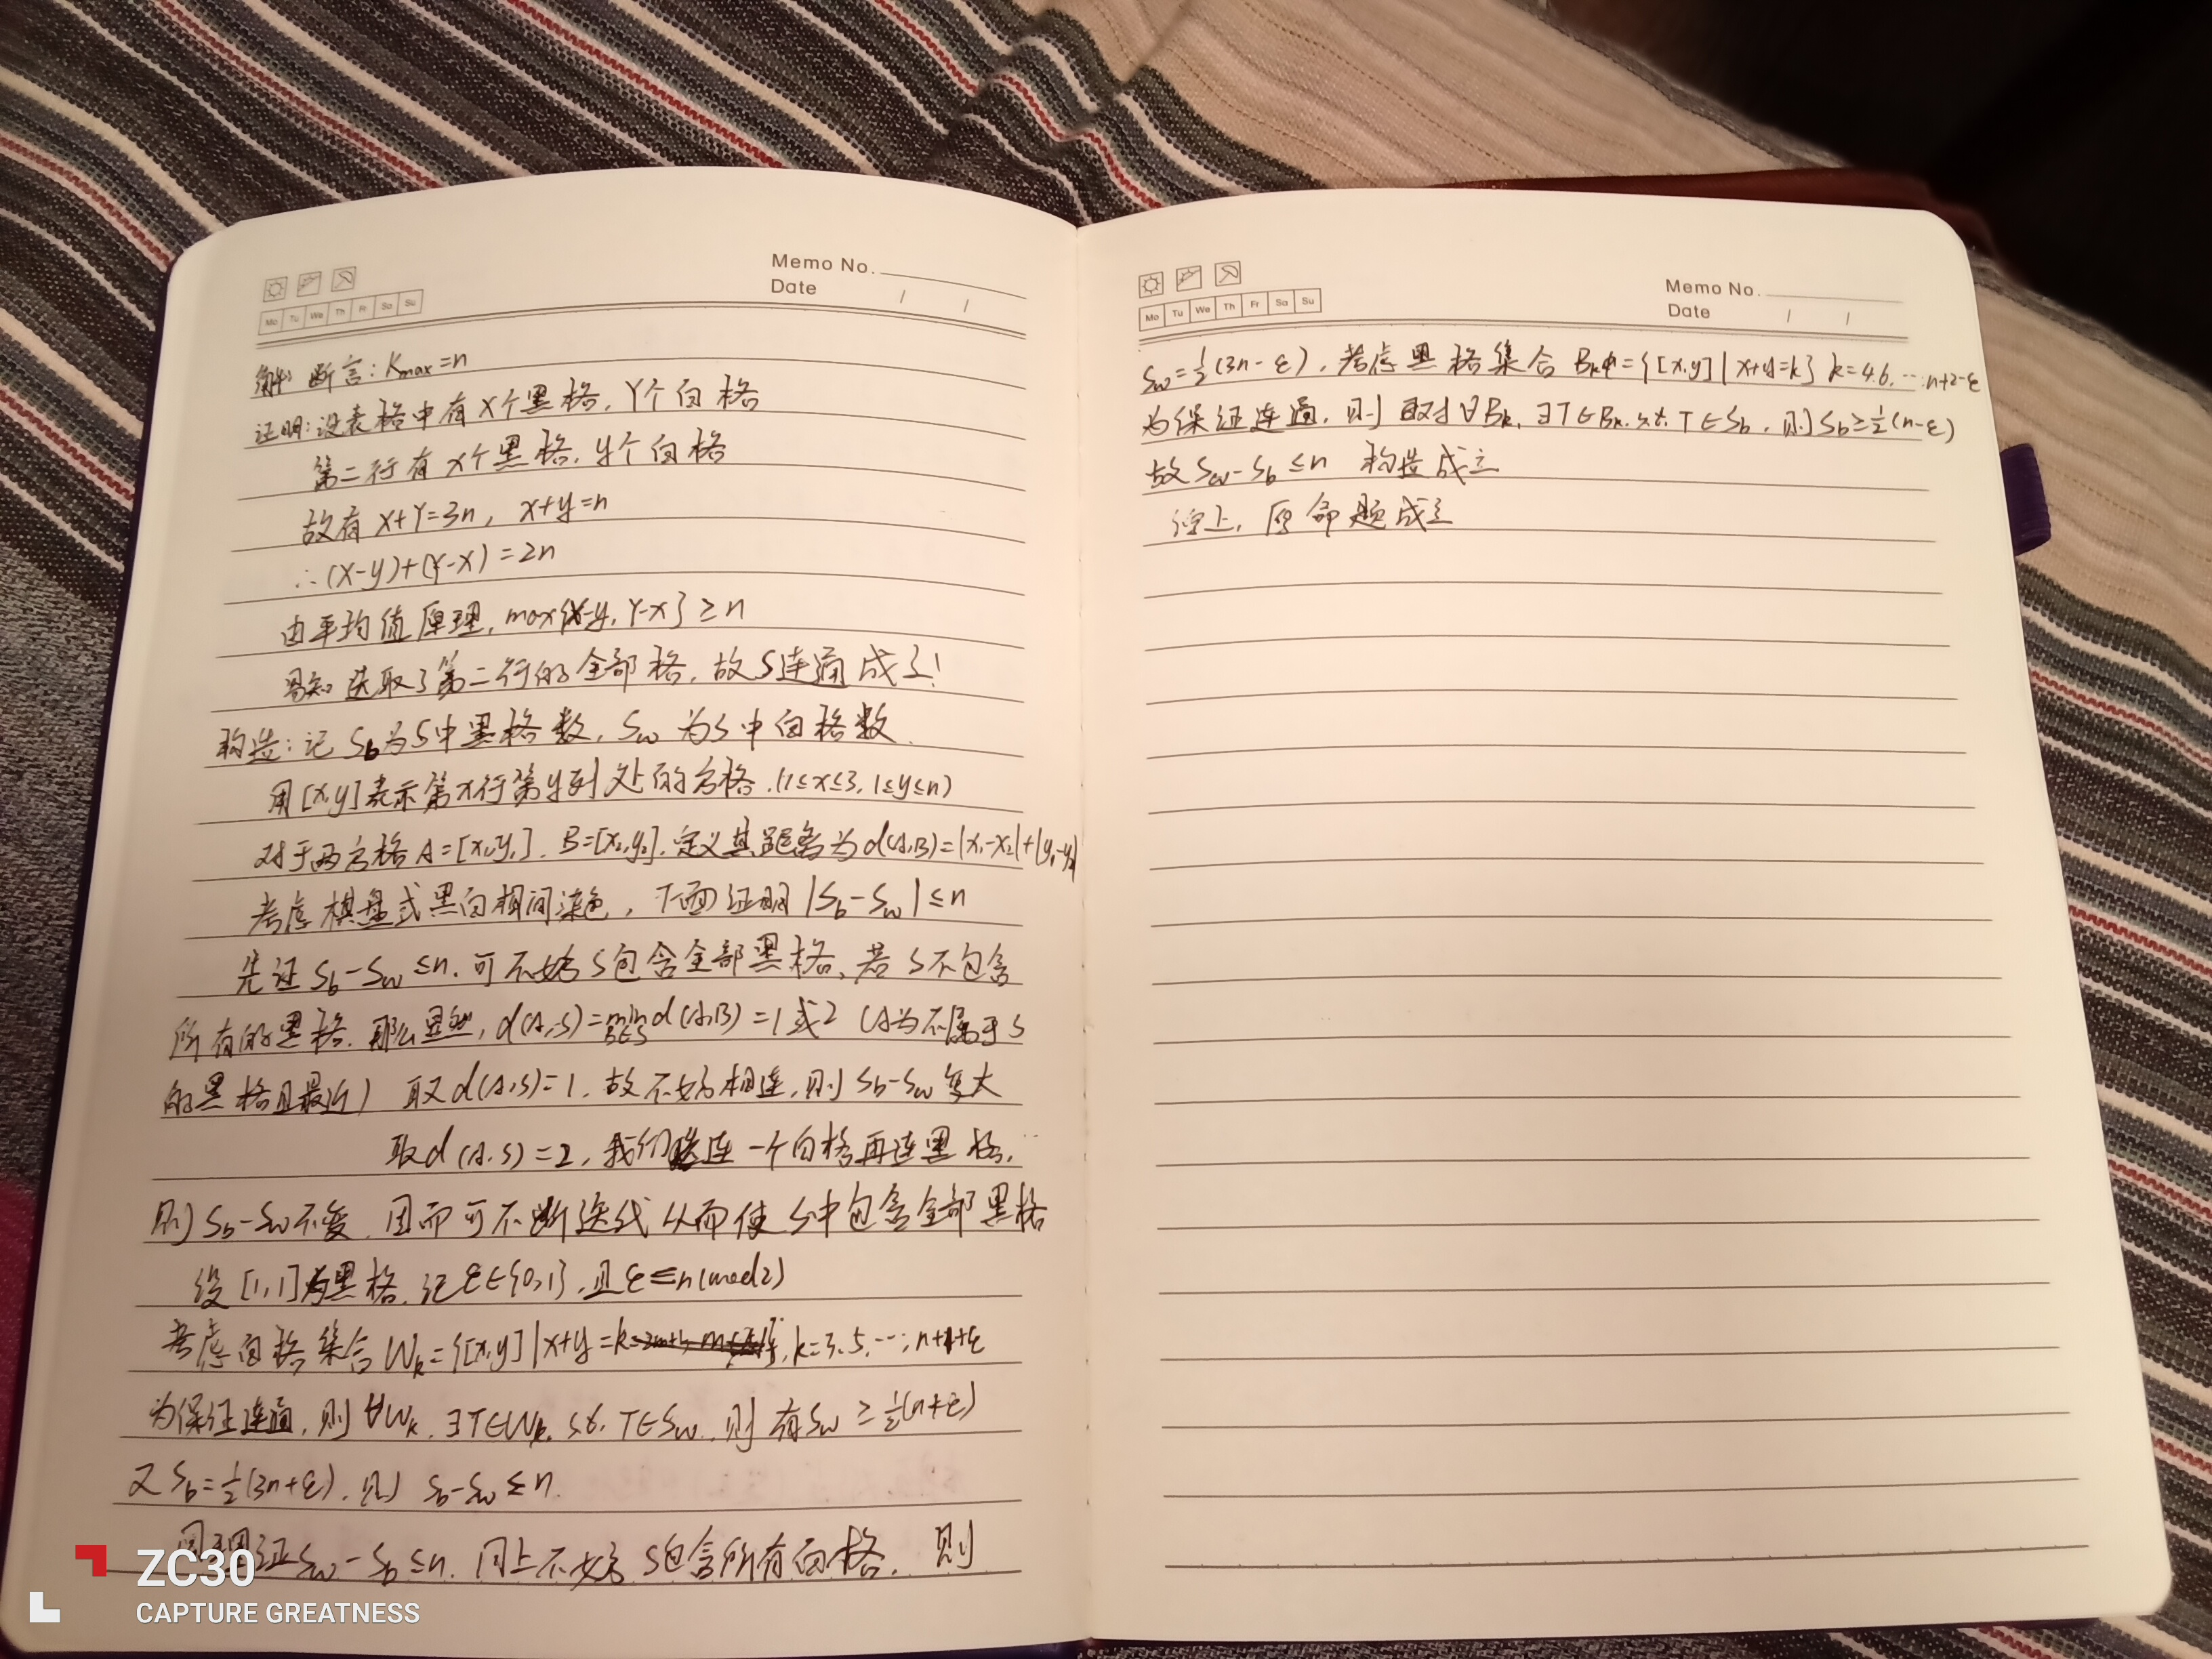 Memo No.
Date / /
Mo Tu We Th Fr Sa Su
解: 断言: Kmax=n
证明: 设表格中有X个黑格, Y个白格
第二行有x个黑格, y个白格
故有 X+Y=3n, x+y=n
∴(X-y)+(Y-x)=2n
由平均值原理, max{X-y, Y-x}≥n
易知选取了第二行的全部格, 故S连通成立!
构造: 记 Sb为S中黑格数, Sw为S中白格数
用[x,y]表示第x行第y列处的方格.(1≤x≤3, 1≤y≤n)
对于两方格A=[x₁,y₁], B=[x₂,y₂], 定义其距离为d(A,B)=|x₁-x₂|+|y₁-y₂|
考虑棋盘式黑白相间染色, 下面证明|Sb-Sw|≤n
先证 Sb-Sw≤n, 可不妨S包含全部黑格, 若S不包含
所有的黑格, 那么显然, d(A,S)=min B∈S d(A,B)=1或2 (A为不属于S
的黑格且最近) 取d(A,S)=1, 故不妨相连, 则Sb-Sw变大
取d(A,S)=2, 我们连一个白格再连黑格,
则Sb-Sw不变, 因而可不断迭代从而使S中包含全部黑格
设[1,1]为黑格, 记ε∈{0,1}, 且ε≡n(mod2)
考虑白格集合Wk={[x,y]|x+y=k}, k=3,5,…,n+1+ε
为保证连通, 则∀Wk, ∃T∈Wk, s.t. T∈Sw, 则有Sw≥½(n+ε)
又Sb=½(3n+ε), 则 Sb-Sw≤n.
同理证Sw-Sb≤n, 同上不妨S包含所有白格, 则
Memo No.
Date / /
Mo Tu We Th Fr Sa Su
Sw=½(3n-ε), 考虑黑格集合Bk={[x,y]|x+y=k} k=4,6,…,n+2-ε
为保证连通, 则对∀Bk, ∃T∈Bk, s.t. T∈Sb, 则Sb≥½(n-ε)
故Sw-Sb≤n 构造成立
综上, 原命题成立
ZC30
CAPTURE GREATNESS